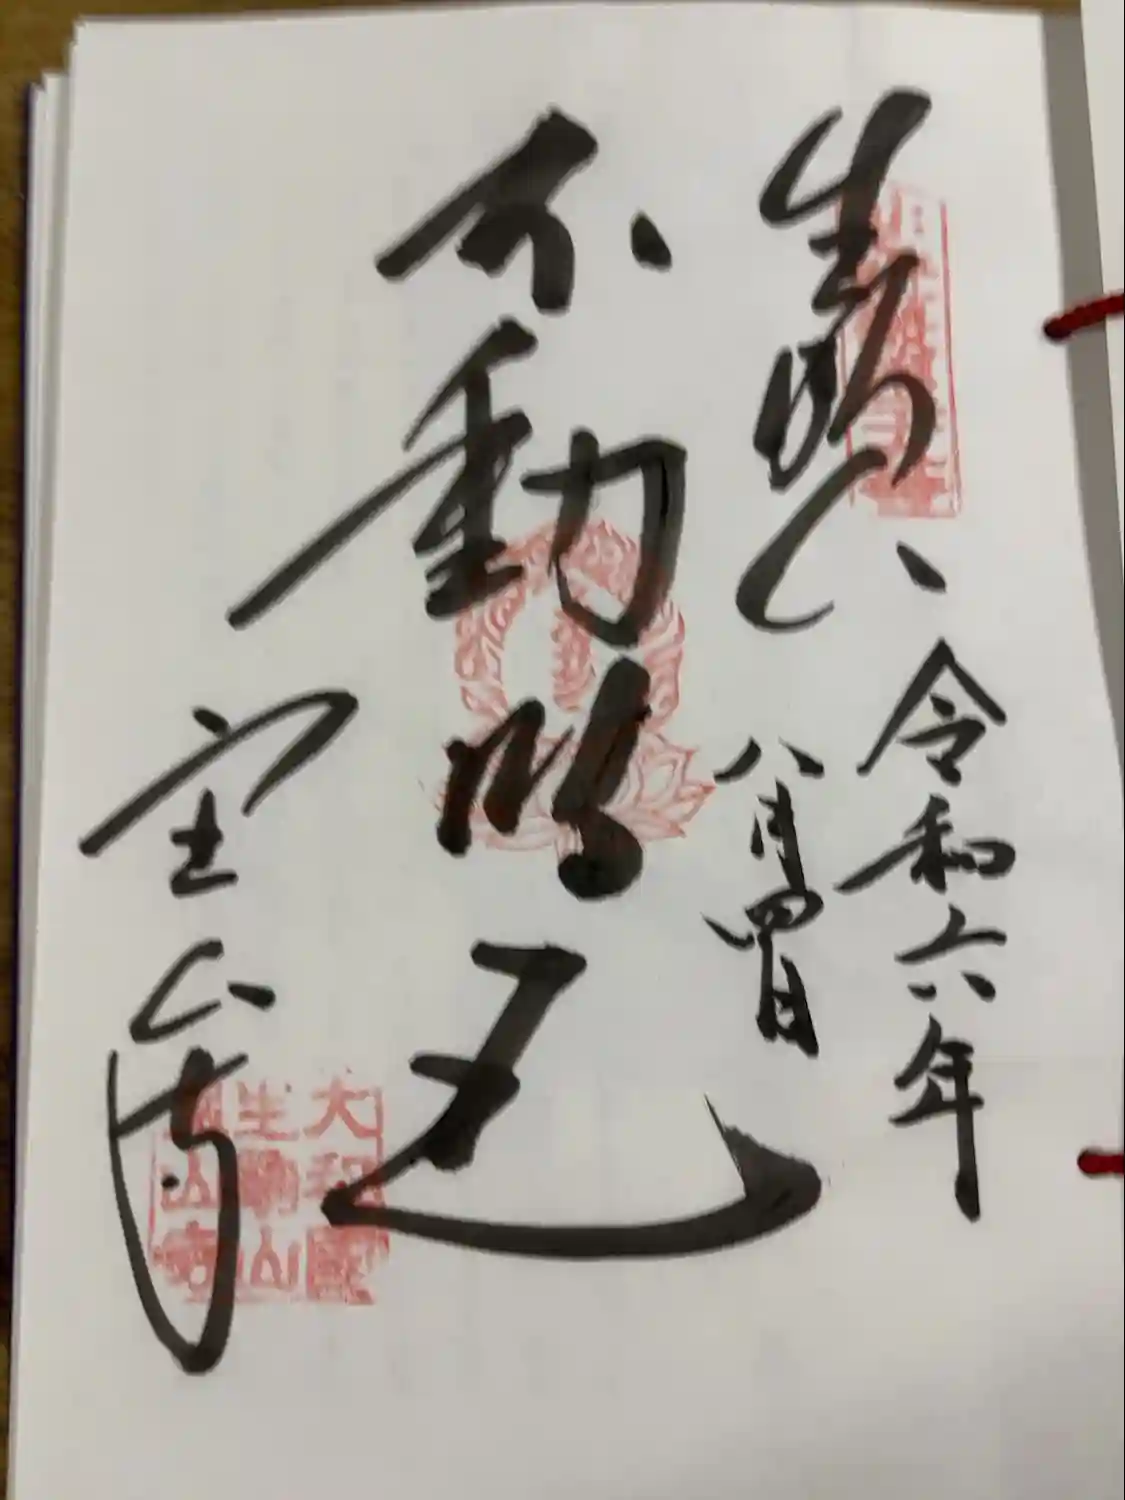 生駒山
令和六年
八月四日
不動明王
宝山寺
大和國
生駒山
寳山寺